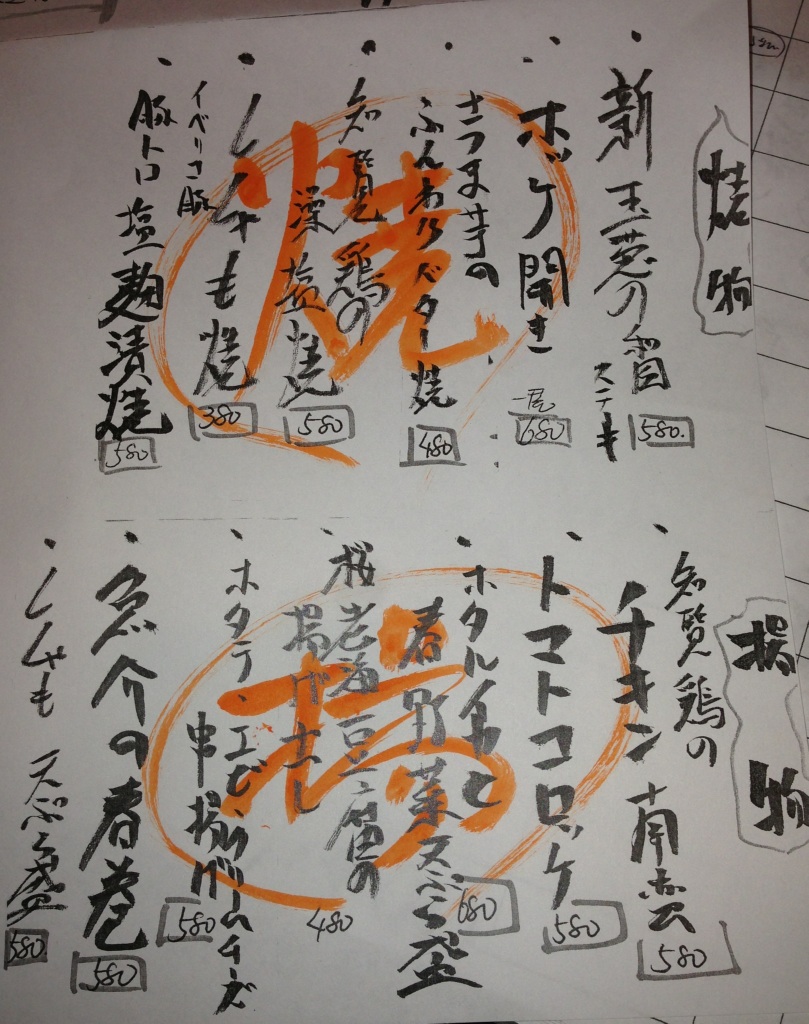 焼物
新玉葱の
ステーキ
580.
ホッケ開き
一尾
680
さつま芋の
ふんわりバター焼
480
知覧鶏の
藻塩焼
580
ししゃも焼
380
イベリコ豚
豚トロ塩麹漬焼
580
焼
揚物
知覧鶏の
チキン南蛮
580
トマトコロッケ
580
ホタルイカと
春野菜天ぷら盛
680
桜老海豆腐の
揚げ出し
480
ホタテ、エビ、クリームチーズ
串揚げ
580
の春巻
580
ししゃも天ぷら盛
580
揚